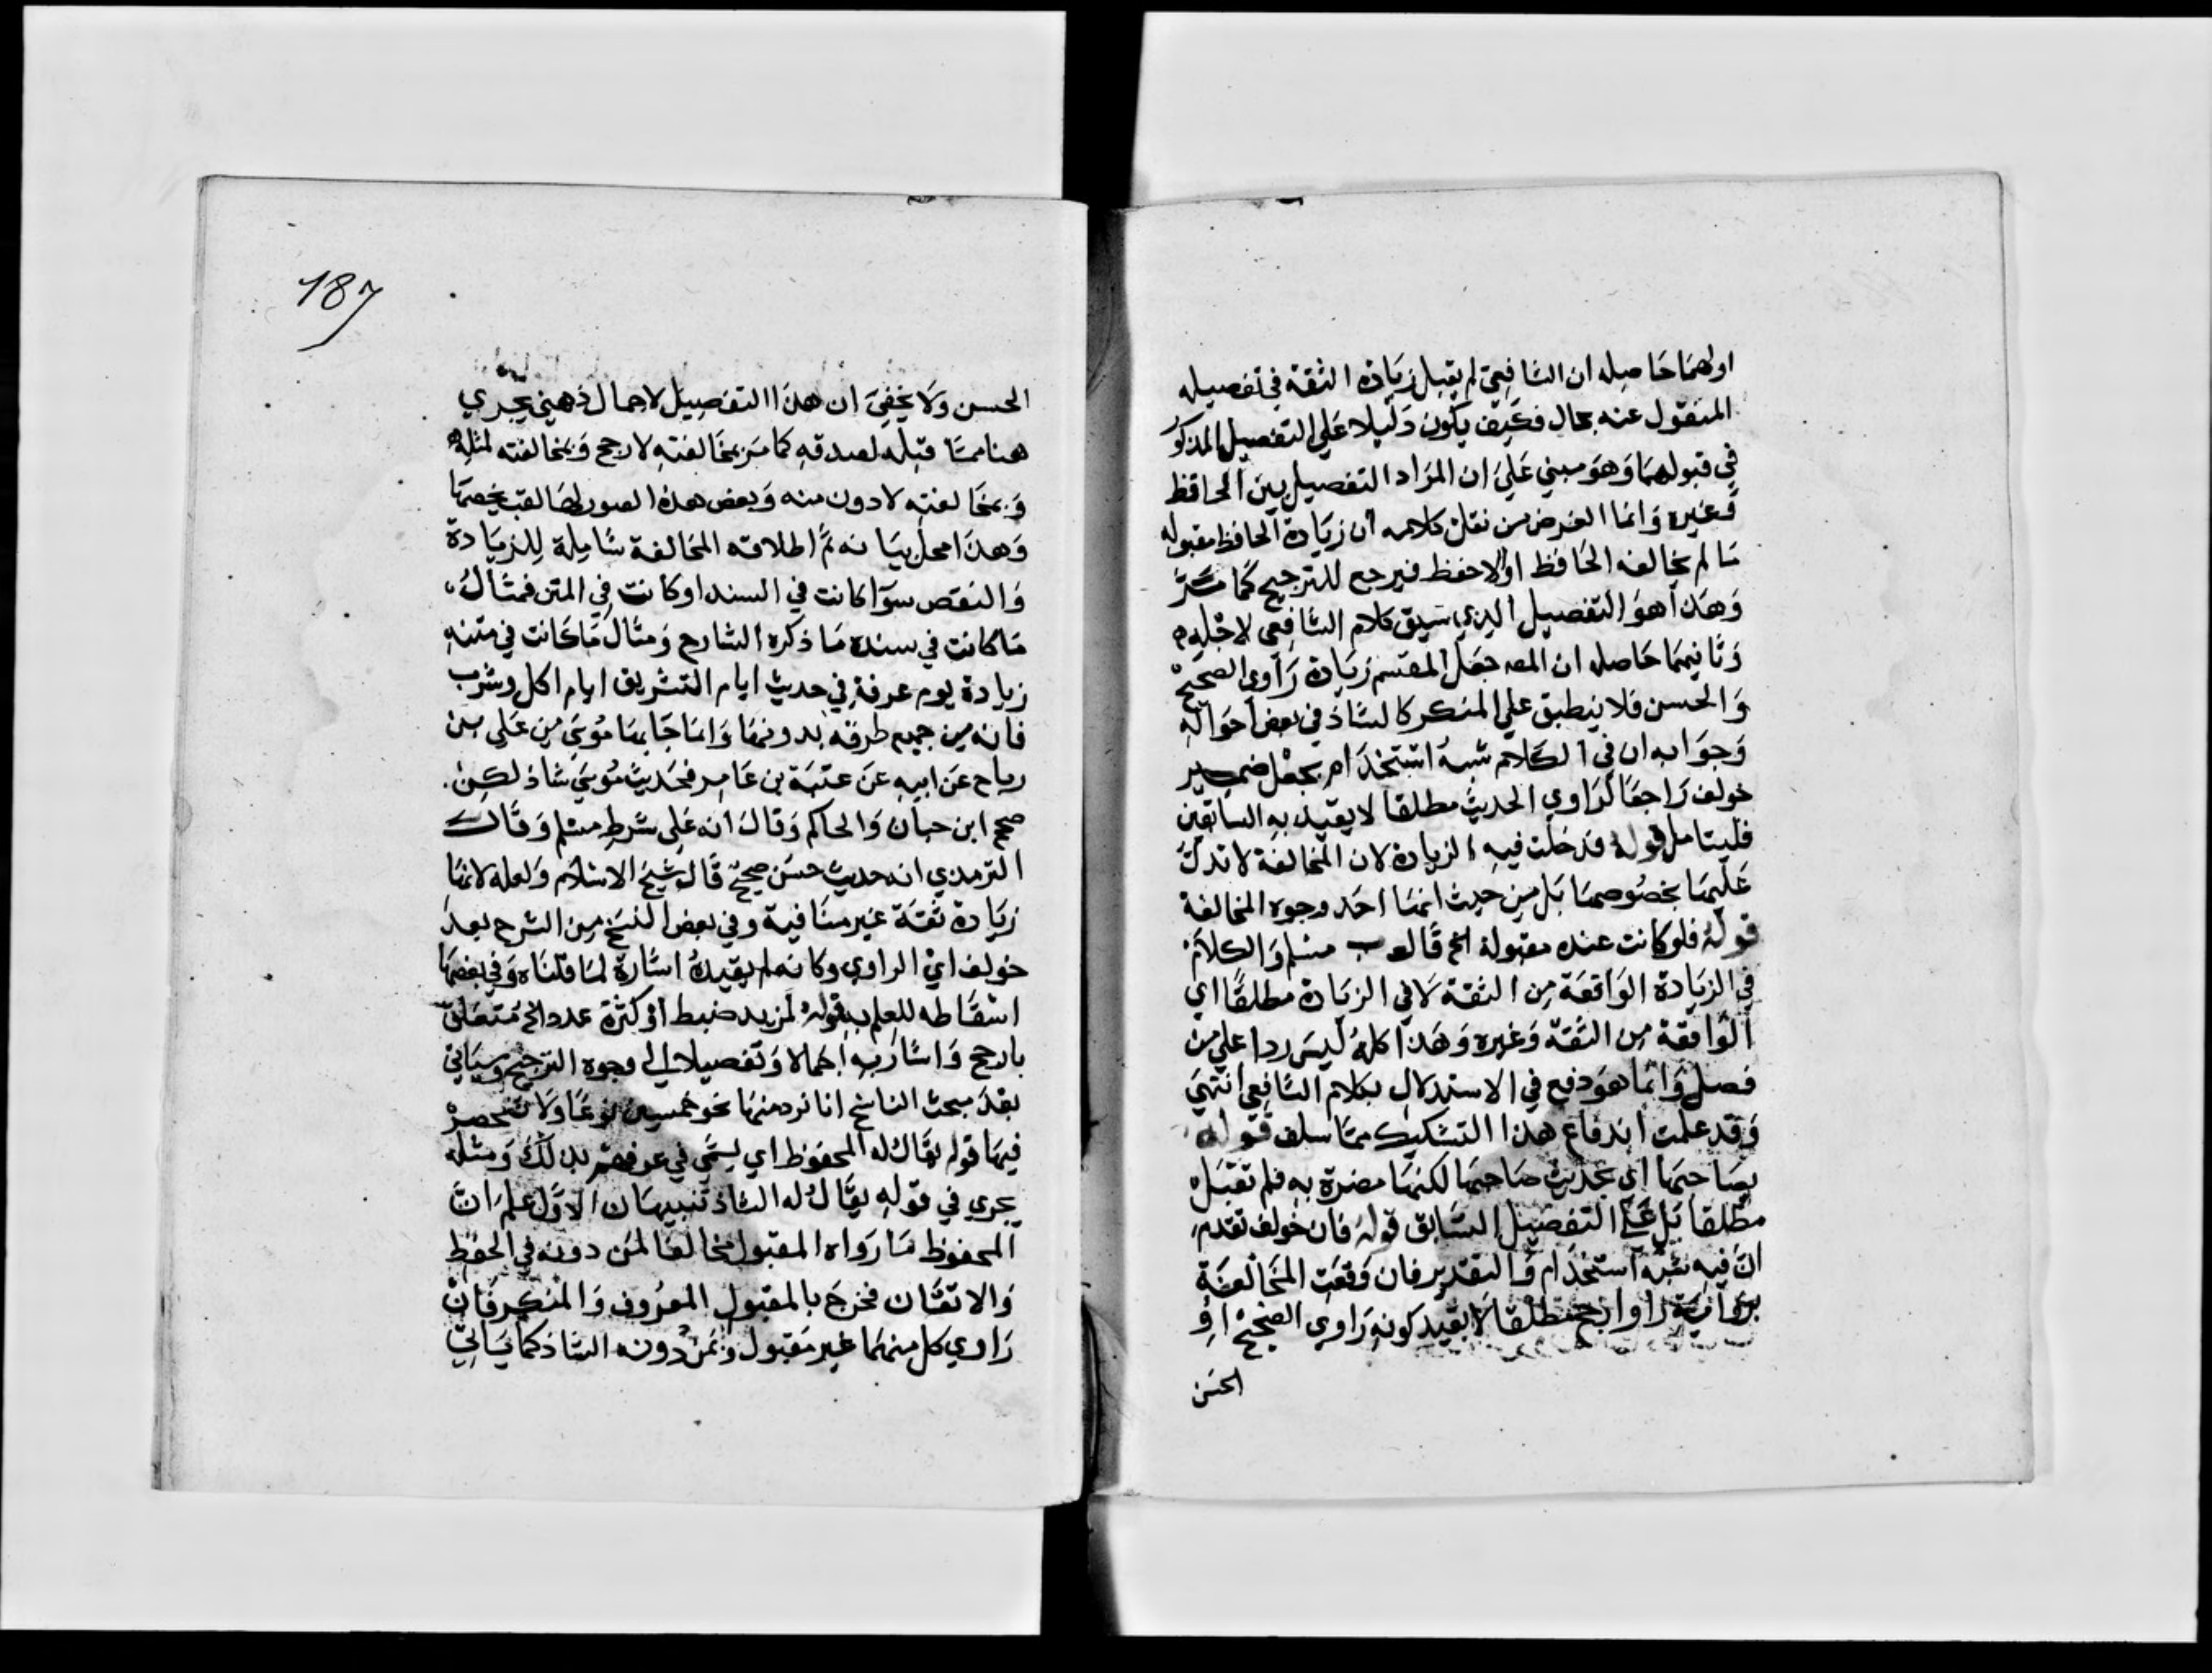 اولهما حاصله ان الشافعي لم يقبل زيادة الثقة في تفصيله
المنقول عنه بحال فكيف يكون دليلا علي التفصيل المذكور
في قبولهما وهو مبني علي ان المراد التفصيل بين الحافظ
وغيره وانما الغرض من نقل كلامه ان زيادة الحافظ مقبوله
ما لم يخالفه الحافظ او الاحفظ فيرجع للترجيح كما مر
وهذا هو التفصيل الذي سيق كلام الشافعي لاجله
وثانيهما حاصله ان المصه جعل المقسم زيادة راوي الصحيح
والحسن فلا ينطبق علي المنكر كالشاذ في بعض احواله
وجوابه ان في الكلام شبه استخدام بجعل ضمير
خولف راجعا لراوي الحديث مطلقا لا بقيد به السابقين
فليتامل قوله قد خلت فيه الزيادة لان المخالفة لا تدل
عليها بخصوصها بل من حيث انها احد وجوه المخالفة
قوله فلو كانت عنده مقبولة الخ قال مسلم والكلام
في الزيادة الواقعة من الثقة لا في الزيادة مطلقا اي
الواقعة من الثقة وغيره وهذا كله ليس ردا علي من
فصل وانما هو دفع في الاستدلال بكلام الشافعي انتهي
وقد علمت اندفاع هذا التشكيك مما سلف قوله
بصاحبها اي بحديث صاحبها لكنها مضرة به فلم تقبل
مطلقا بل علي التفصيل السابق قوله فان خولف تقدم
ان فيه شبه استخدام والتقدير فان وقعت المخالفة
برواية راو ارجح مطلقا لا بقيد كونه راوي الصحيح او
الحسن
187
الحسن ولا يخفي ان هذا التفصيل لاجمال ذهني يجري
هنا مما قبله لصدقه كما مر بمخالفته لارجح وبمخالفته لمثله
وبمخالفته لادون منه وبعض هذه الصور لها لقب يخصها
وهذا محل بيانه ثم اطلاقه المخالفة شاملة للزيادة
والنقص سوآ كانت في السند او كانت في المتن فمثال
ما كانت في سنده ما ذكره الشارح ومثال ما كانت في متنه
زيادة يوم عرفة في حديث ايام التشريق ايام اكل وشرب
فانه من جميع طرقه بدونها وانما جا بها موسي بن علي بن
رباح عن ابيه عن عقبة بن عامر فحديث موسي شاذ لكن
صححه ابن حبان والحاكم وقال انه علي شرط مسلم وقال
الترمذي انه حديث حسن صحيح قال شيخ الاسلام ولعله لانها
زيادة ثقة غير منافية وفي بعض النسخ من الشرح بعد
خولف اي الراوي وكانه لم يقيده اشارة لما قلناه وفي بعضها
اسقاطه للعلم به قوله لمزيد ضبط او كثرة عدد الخ متعلق
بارجح واشار به اجمالا وتفصيلا الي وجوه الترجيح وسياتي
بعد مبحث الناسخ انا نرد منها نحو خمسين نوعا ولا تنحصر
فيها قوله يقال له المحفوظ اي يسمي في عرفهم بذلك ومثله
يجري في قوله يقال له الشاذ تنبيهان الاول علم ان
المحفوظ ما رواه المقبول مخالفا لمن دونه في الحفظ
والاتقان فخرج بالمقبول المعروف والمنكر فان
راوي كل منهما غير مقبول وبمن دونه الشاذ كما ياتي